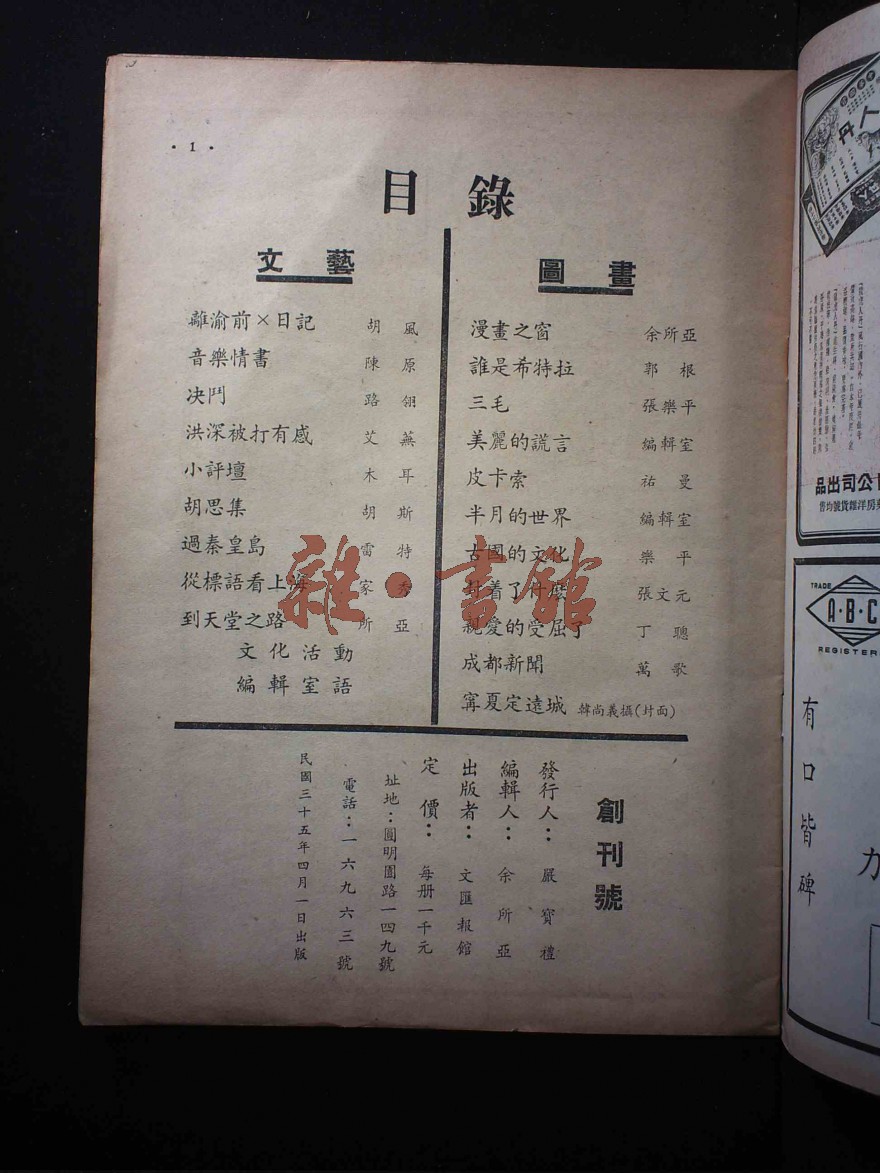 • 1 •
目錄
文藝
離渝前×日記 胡風
音樂情書 陳原
決鬥 路翎
洪深被打有感 艾蕪
小評壇 木耳
胡思集 胡斯
過秦皇島 雷特
從標語看上海 家秀
到天堂之路 所亞
文化活動
編輯室語
圖畫
漫畫之窗 余所亞
誰是希特拉 郭根
三毛 張樂平
美麗的謊言 編輯室
皮卡索 祐曼
半月的世界 編輯室
古國的文化 樂平
封着了什麼 張文元
親愛的受屈了 丁聰
成都新聞 萬歌
寗夏定遠城 韓尚義攝(封面)
創刊號
發行人：嚴寶禮
編輯人：余所亞
出版者：文匯報館
定價：每册一千元
址地：圓明園路一四九號
電話：一六九六三號
民國三十五年四月一日出版
雜·書館
人丹
品出司公
售均號貨雜洋房
TRADE
A·B·C
REGISTER
有口皆碑